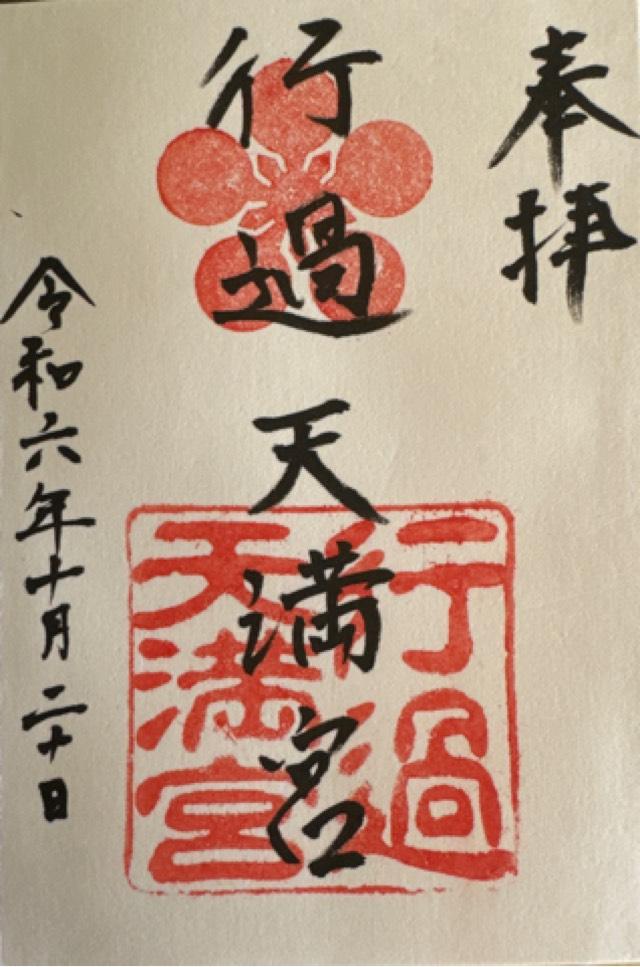 奉拝
行過天満宮
行過
天満宮
令和六年十月二十日